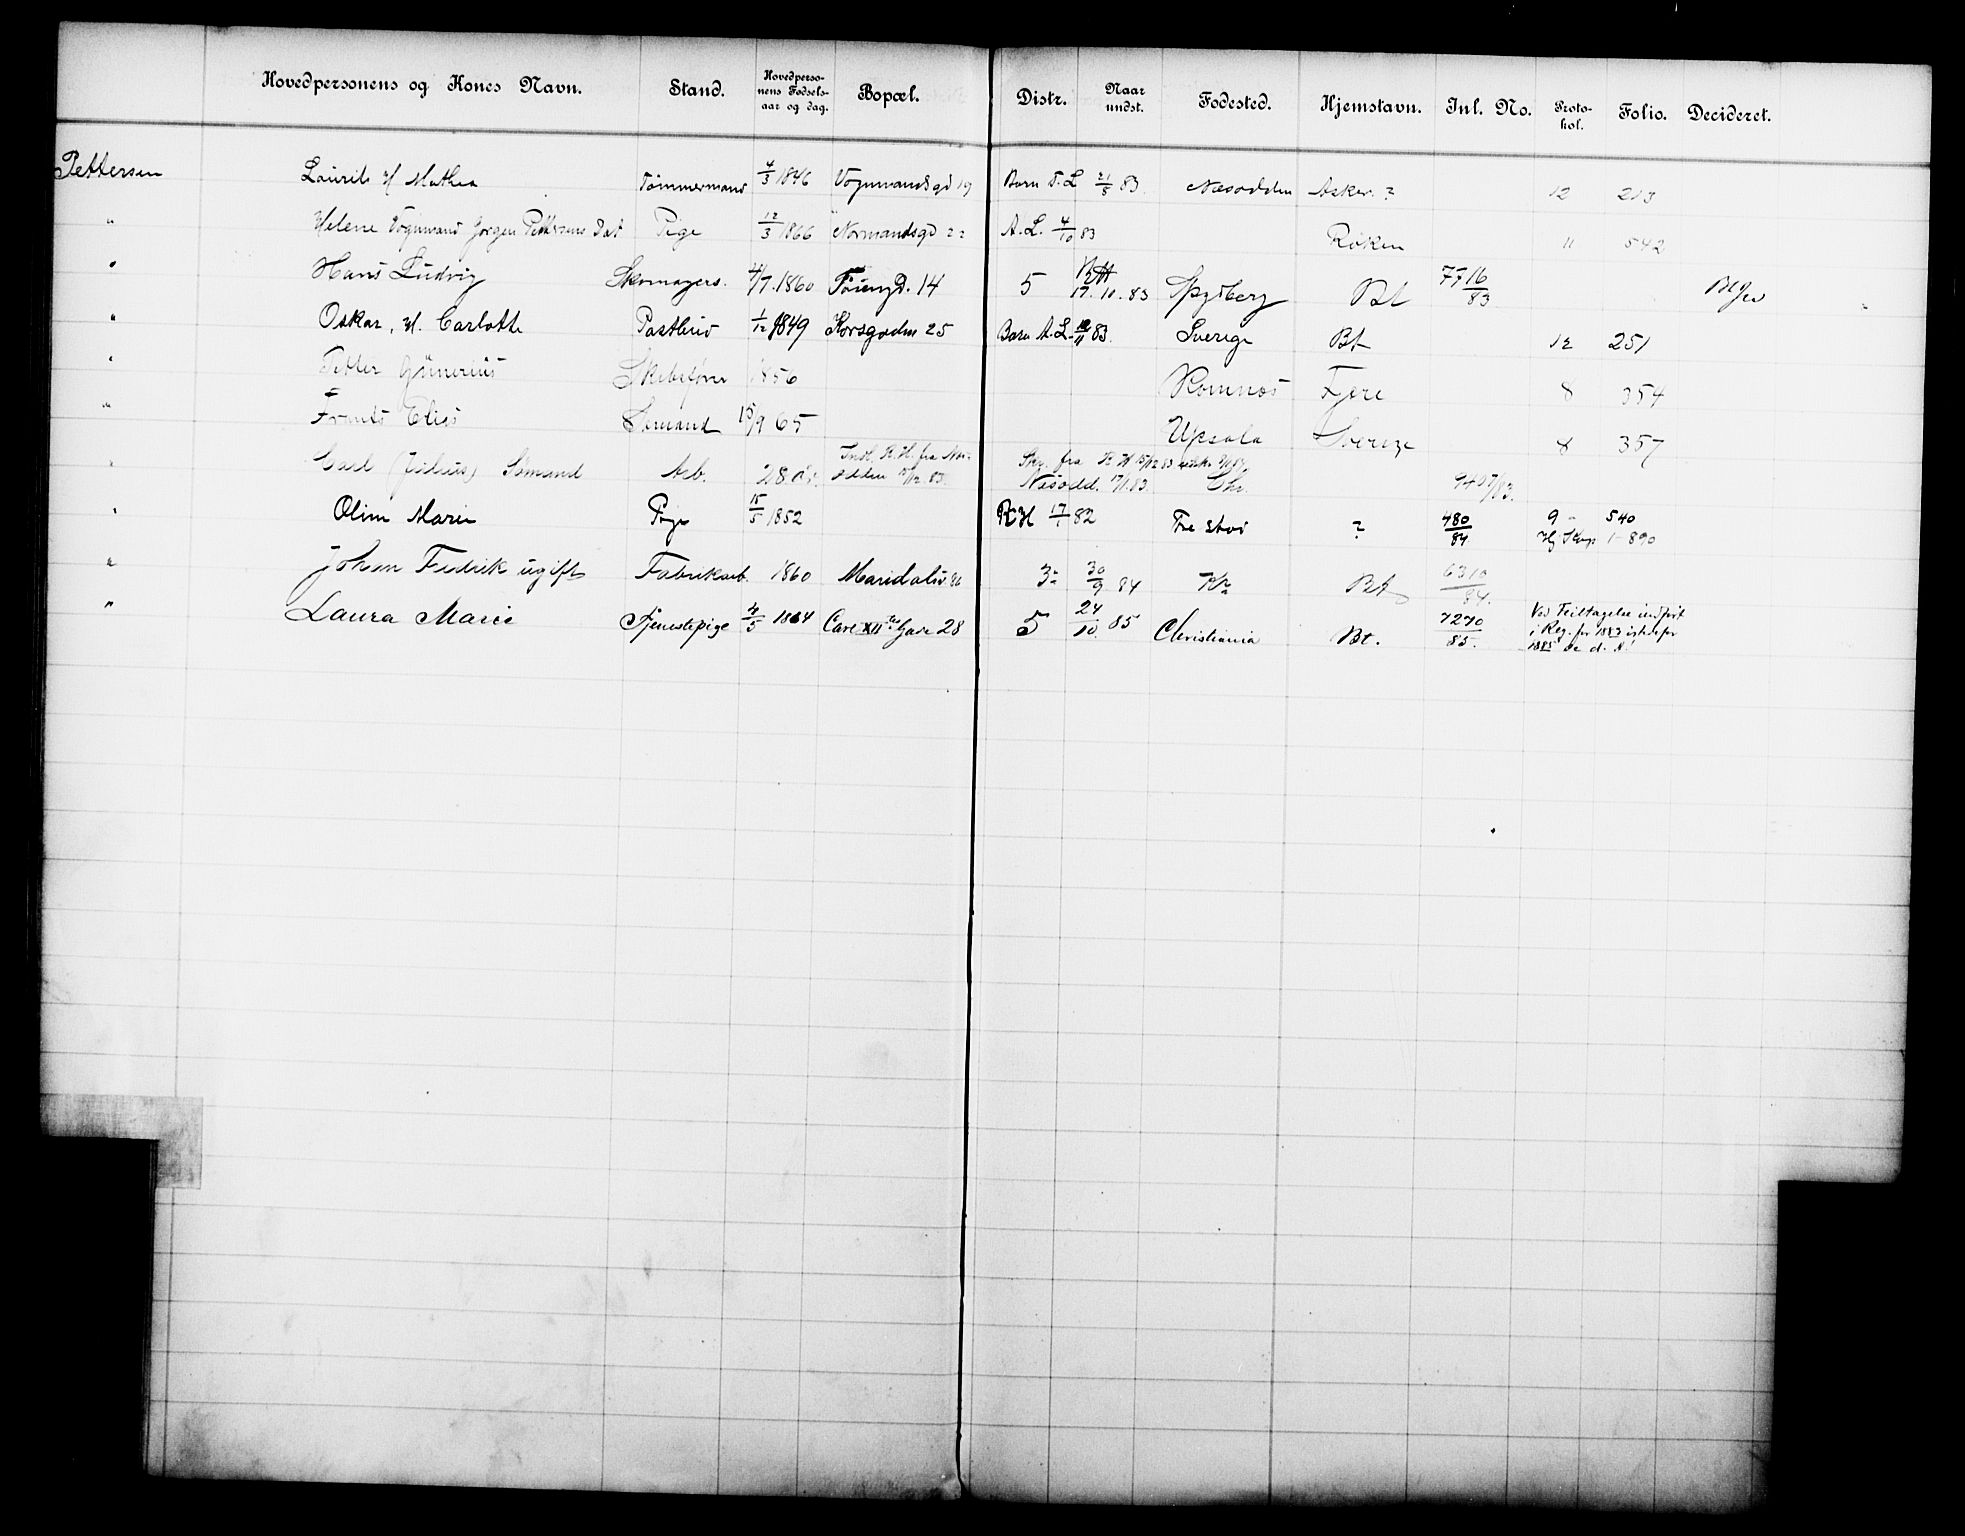 Hovedpersonens og Kones Navn. Stand. Hovedperso-nens Fødsels-aar og dag. Bopæl. Distr. Naar undst. Fødested. Hjemstavn. Inl. No. Proto-kol. Folio. Decideret.
Pettersen Laurits H/ Mathea Tømmermand 4/3 1846 Vognmandsgd 19 Barn T. L 21/5 83. Næsodden Asker. ? 12 213
" Helene Vognmand Jørgen Pettersens Dat Pige 12/3 1866 Normandsgd 22 A. L. 4/10 83 Røken 11 542
" Hans Ludvig Skomagers. 4/7. 1860 14 5 17. 10. 83 Spydberg Bt 7716/83
" Oskar, H/. Carlotte Postbud 1/12 1849 Korsgaden 25 Barn A. L. 83. Sverige Bt 12 251
" Petter Gunerius 1856 Romnæs Fjere 8 354
" Frants Elias Sømand 15/9 65 Upsala Sverige 8 357
" Carl (Julius) Sømand Arb. 28 År. Indl. R. H. fra Næs-odden 83. Sky. fra R H 15/12 83 Næsodd. 83. Chr. 9407/83.
" Oline Marie Pige 15/5 1852 RH 17/1 82 ? 480/84 9 - 540
1 - 890
" Johan Fredrik ugift Fabrikarb. 1860 Maridalsv 86 3 30/9 84 Bt 6310/84.
" Laura Marie Tjenestepige 4/5 1864 Carl XII tes Gade 28 5 24/10. 85 Christiania Bt. 7270/85. Ved Feiltagelse indført
i Reg. for 1883 istedefor
1885